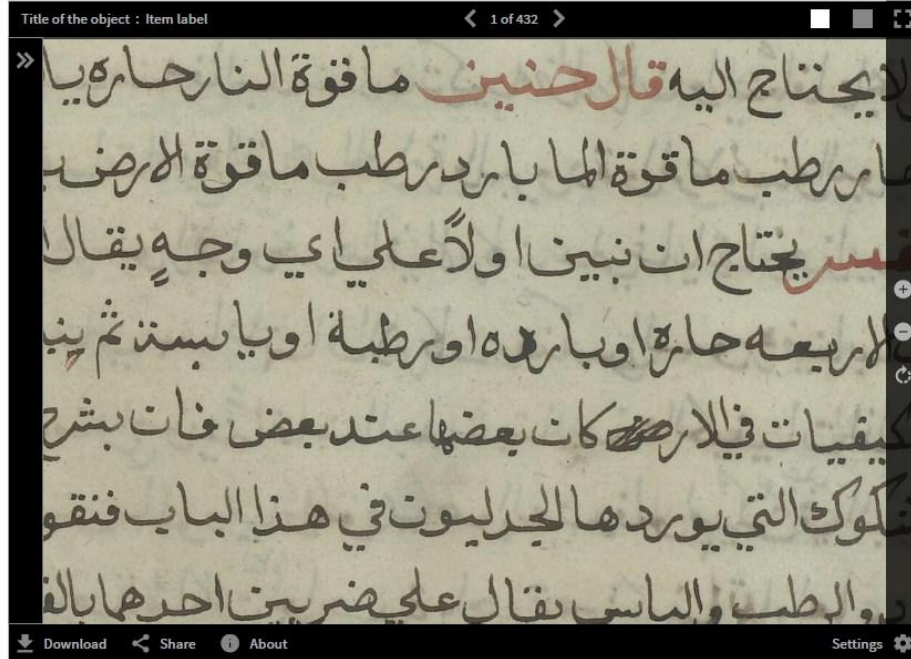 Title of the object : Item label
1 of 432
ولا يحتاج اليه قال حنين ما قوة النار حارة يا
حار رطب ما قوة الما بارد رطب ما قوة الارض
يحتاج ان نبين اولاً علي اي وجهٍ يقال
الاربعه حارة او بارده او رطبة او يابسة ثم
كيفيات في الارض كان بعضها عند بعض فان بشرح
شكوك التي يوردها الجدليون في هذا الباب فنقو
والرطب واليابس يقال علي ضربين احدهما بالف
Download Share About Settings